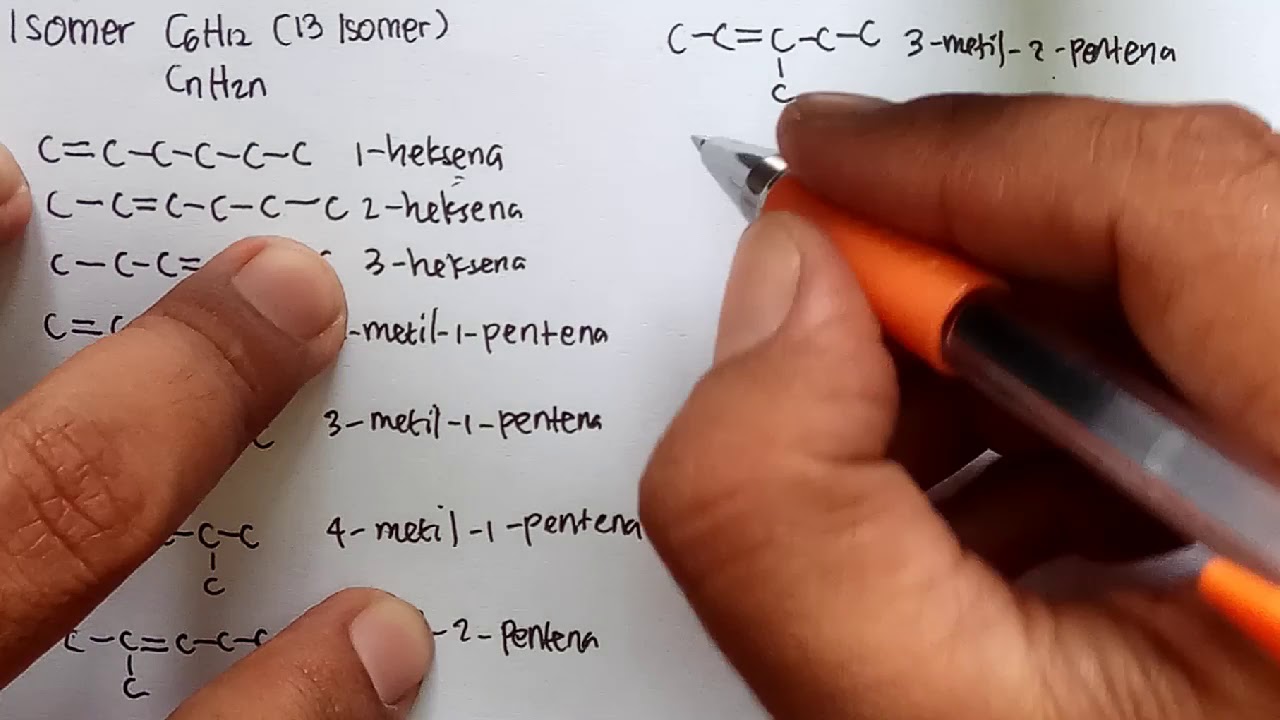 Isomer C6H12 (13 Isomer)
CnH2n
C=C-C-C-C-C 1-heksena
C-C=C-C-C-C 2-heksena
C-C-C= C 3-heksena
C=C -metil-1-pentena
C 3-metil-1-pentena
-C-C 4-metil-1-pentena
C
C-C=C-C-C -2-pentena
C
C-C=C-C-C 3-metil-2-pentena
C